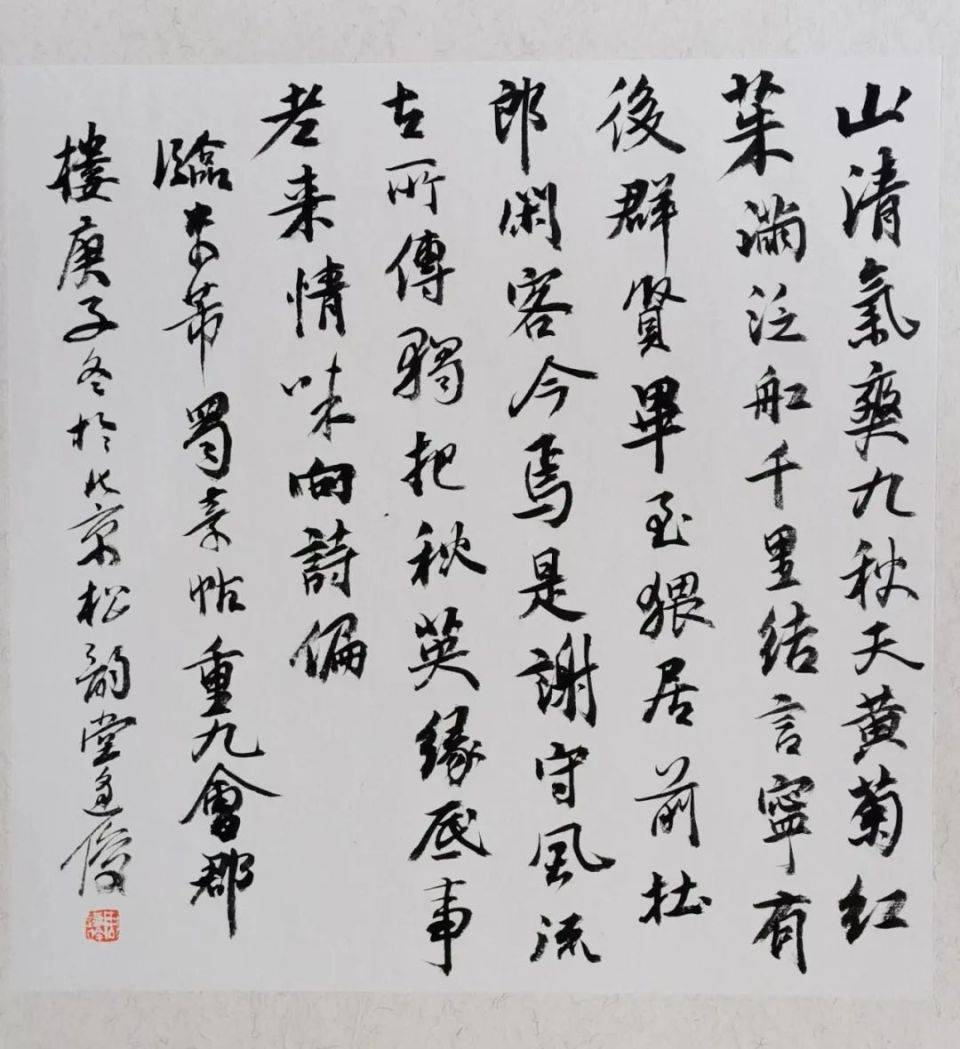 山清氣爽九秋天黄菊红
茱滿泛船千里结言寧有
後群賢畢至猥居前杜
郎閑客今焉是謝守風流
古所傳獨把秋英緣底事
老来情味向詩偏
臨米芾蜀素帖重九會郡
樓庚子冬於北京松韵堂俊